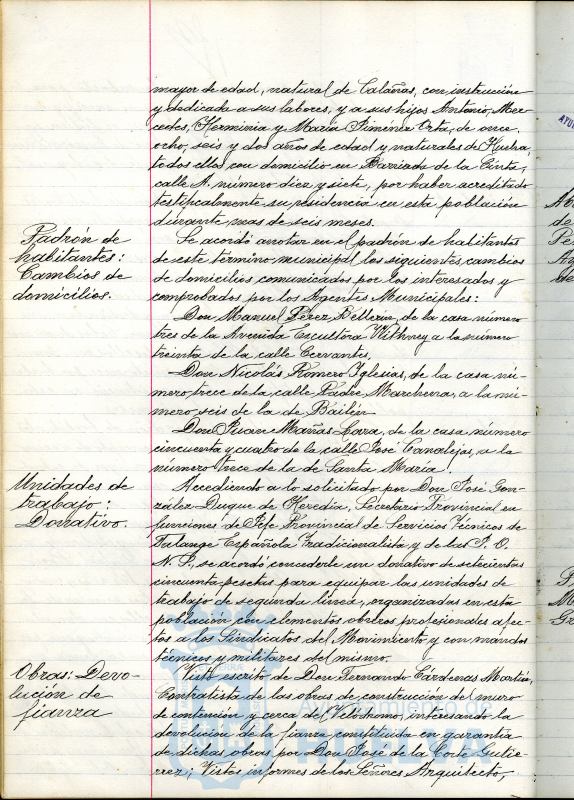 mayor de edad, natural de Calañas, con instrucción
y dedicada a sus labores, y a sus hijos Antonio, Mer-
cedes, Herminia y María Jiménez Orta, de once,
ocho, seis y dos años de edad y naturales de Huelva,
todos ellos con domicilio en Barriada de la Cinta,
calle A. número diez y siete, por haber acreditado
testificalmente su residencia en esta población
durante mas de seis meses.
Padrón de
habitantes:
Cambios de
domicilios.
Se acordó anotar en el padrón de habitantes
de este término municipal los siguientes cambios
de domicilios comunicados por los interesados y
comprobados por los Agentes Municipales:
Don Manuel Pérez Pellerin, de la casa número
tres de la Avenida Escultora Withney a la número
treinta de la calle Cervantes,
Don Nicolás Romero Iglesias, de la casa nú-
mero trece de la calle Padre Marchena, a la nú-
mero seis de la de Bailén
Don Juan Mañas Lara, de la casa número
cincuenta y cuatro de la calle José Canalejas, a la
número trece de la de Santa María.
Unidades de
trabajo:
Donativo.
Accediendo a lo solicitado por Don José Gon-
zález Duque de Heredia, Secretario Provincial en
funciones de Jefe Provincial de Servicios Técnicos de
Falange Española Tradicionalista y de las J. O.
N. S., se acordó concederle un donativo de setecientas
cincuenta pesetas para equipar las unidades de
trabajo de segunda línea, organizadas en esta
población con elementos obreros profesionales afec-
tos a los Sindicatos del Movimiento y con mandos
técnicos y militares del mismo.
Obras: Devo-
lución de
fianza
Visto escrito de Don Fernando Cárdenas Martín,
Contratista de las obras de construcción del muro
de contención y cerca del Velódromo, interesando la
devolución de la fianza constituida en garantía
de dichas obras por Don José de la Corte Gutie-
rrez; Vistos informes de los Señores Arquitecto,
Ayuntamiento de
HUELVA